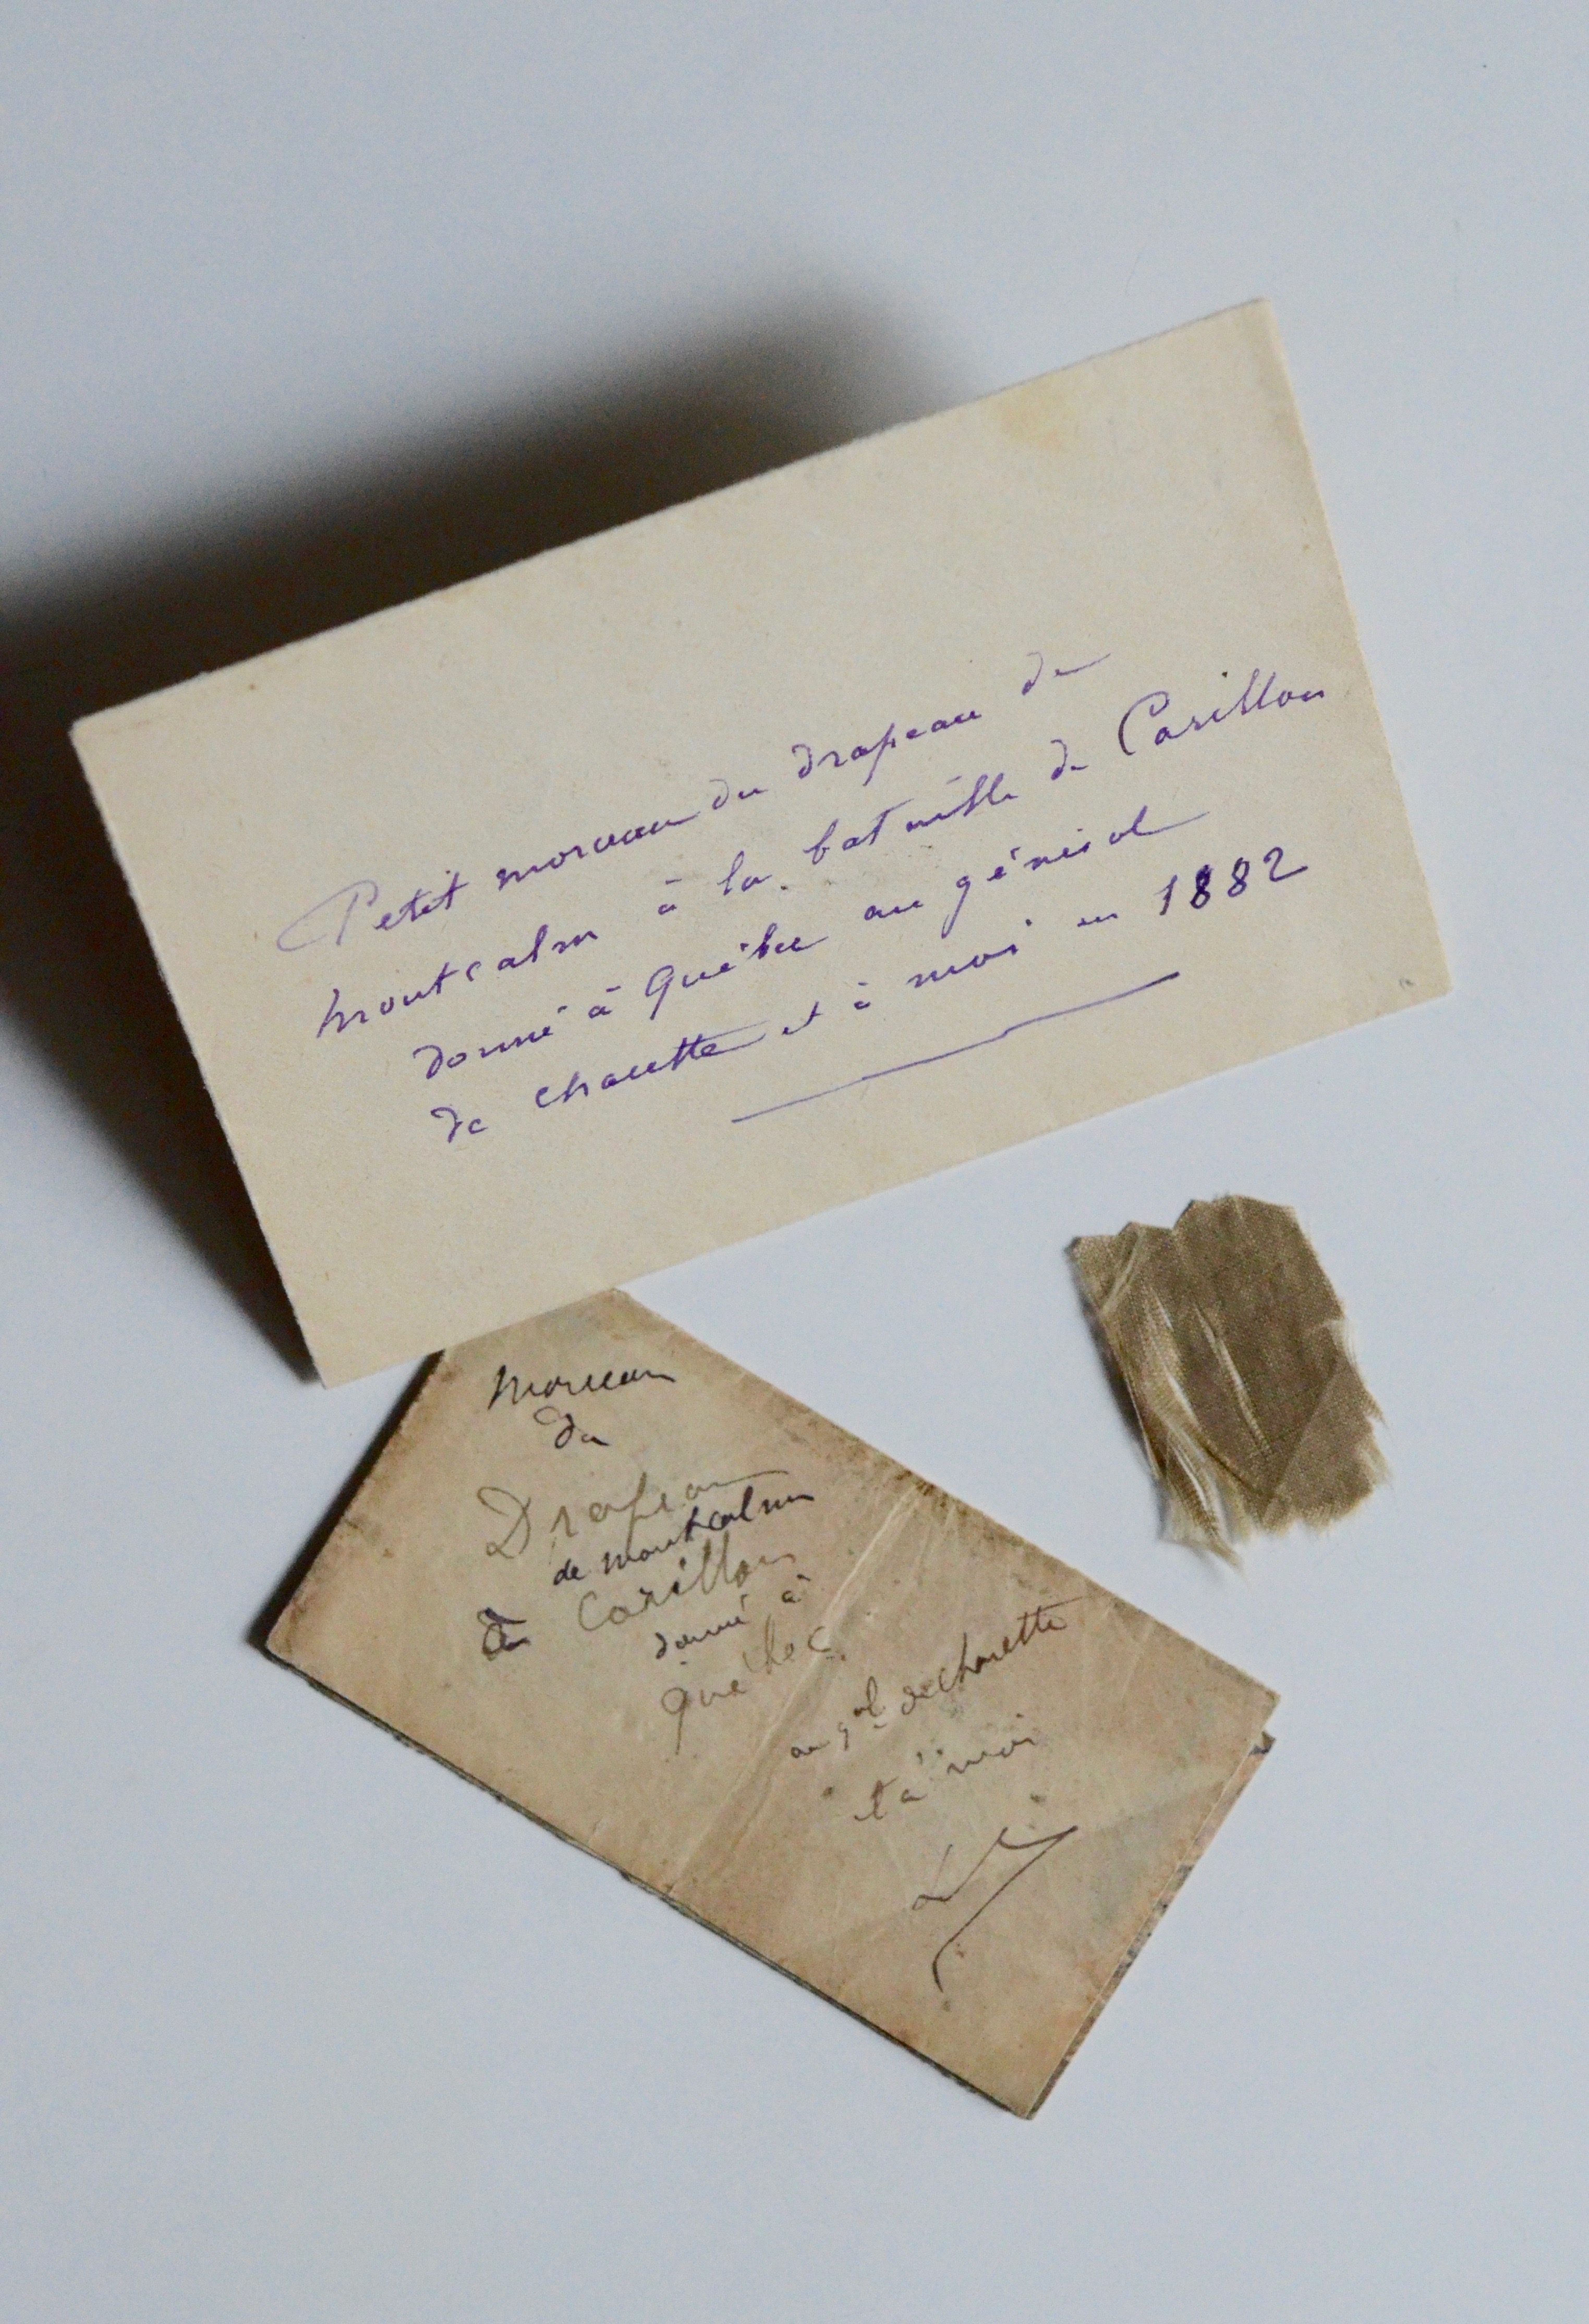 Petit morceau du drapeau de
Montcalm à la bataille de Carillon
donné à Québec au général
de Charette et à moi en 1882
Morceau
du
Drapeau
de Montcalm
à Carillon
donné à
Québec.
au gal de Charette
et à moi